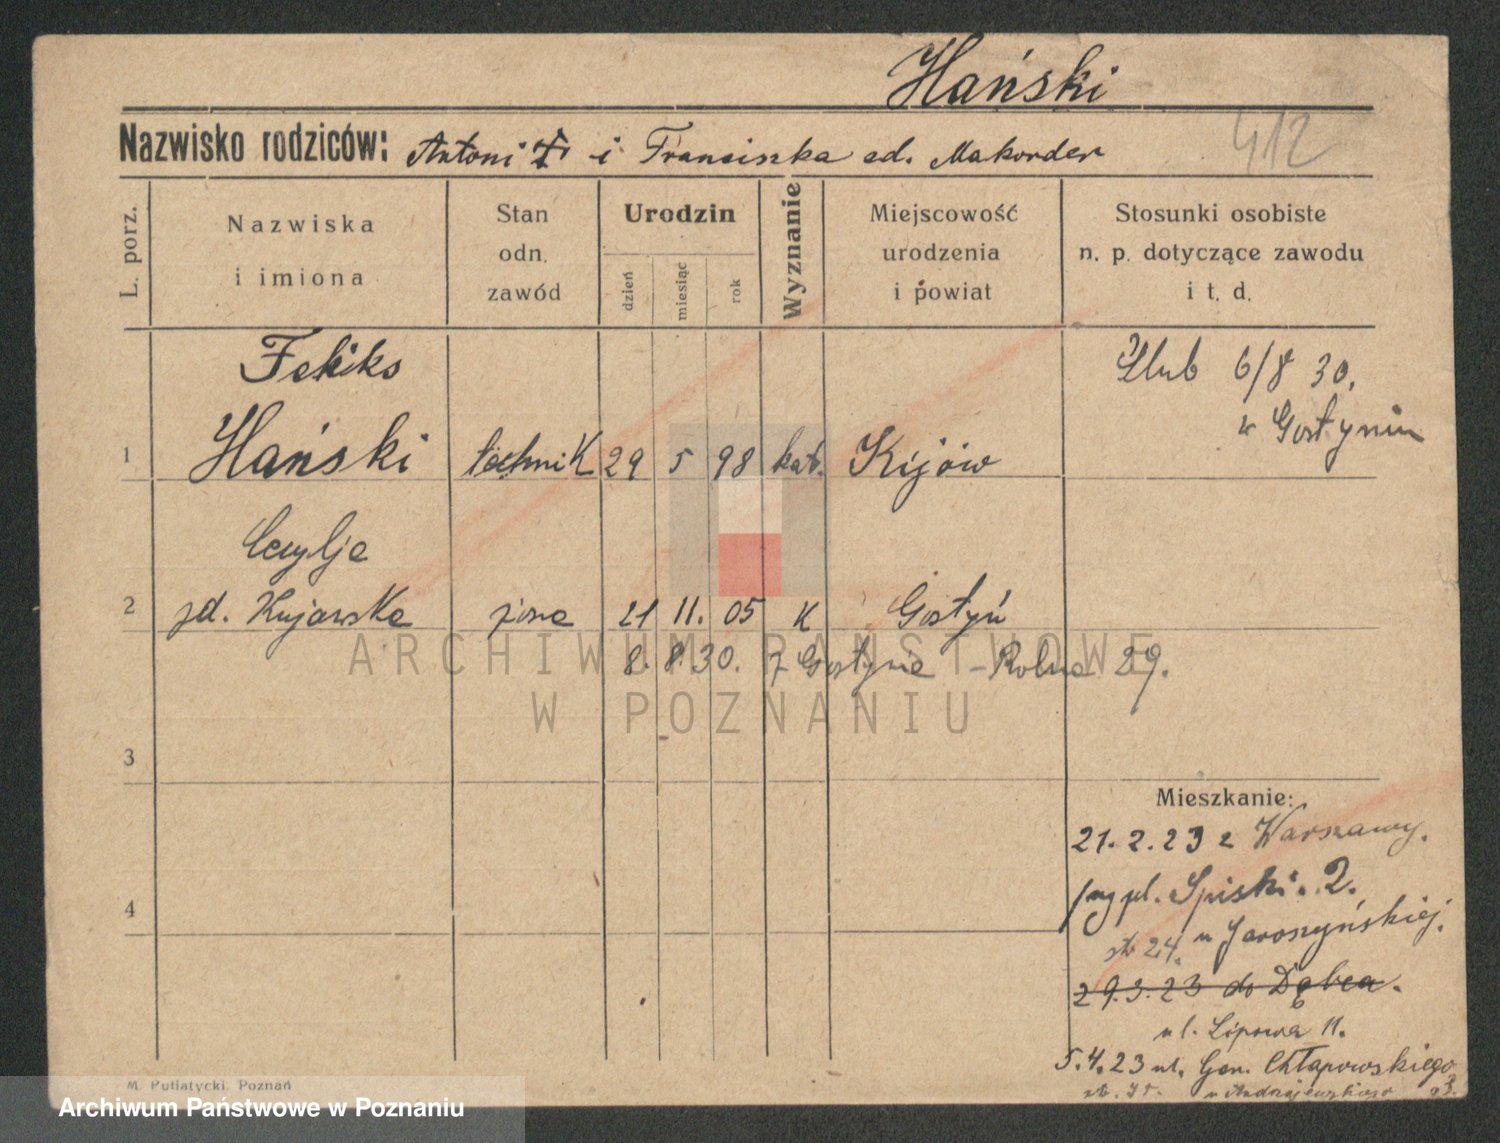 Hański
412
Nazwisko rodziców: Antoni i Franciszka
L. porz.
Nazwiska i imiona
Stan odn. zawód
Urodzin
dzień miesiąc rok
Wyznanie
Miejscowość urodzenia i powiat
Stosunki osobiste n. p. dotyczące zawodu i t. d.
Feliks
Ślub 6/8 30.
w Gostyniu
1 Hański technik 29 5 98 kat. Kijów
Cecylja
2 zd. Kujawska żona 21 11. 05 K Gostyń
8. 8. 30. z Gostynia - Rolna 29.
3
4
Mieszkanie:
21.2.23 z Warszawy.
pl. 2.
24. u Jaroszyńskiej.
29.3.23 do Dębca.
ul. Lipowa 11.
5.4.23 ul. Gen. Chłapowskiego
u Andrzejewskiego
M. Putiatycki, Poznań
ARCHIWUM PAŃSTWOWE
W POZNANIU
Archiwum Państwowe w Poznaniu